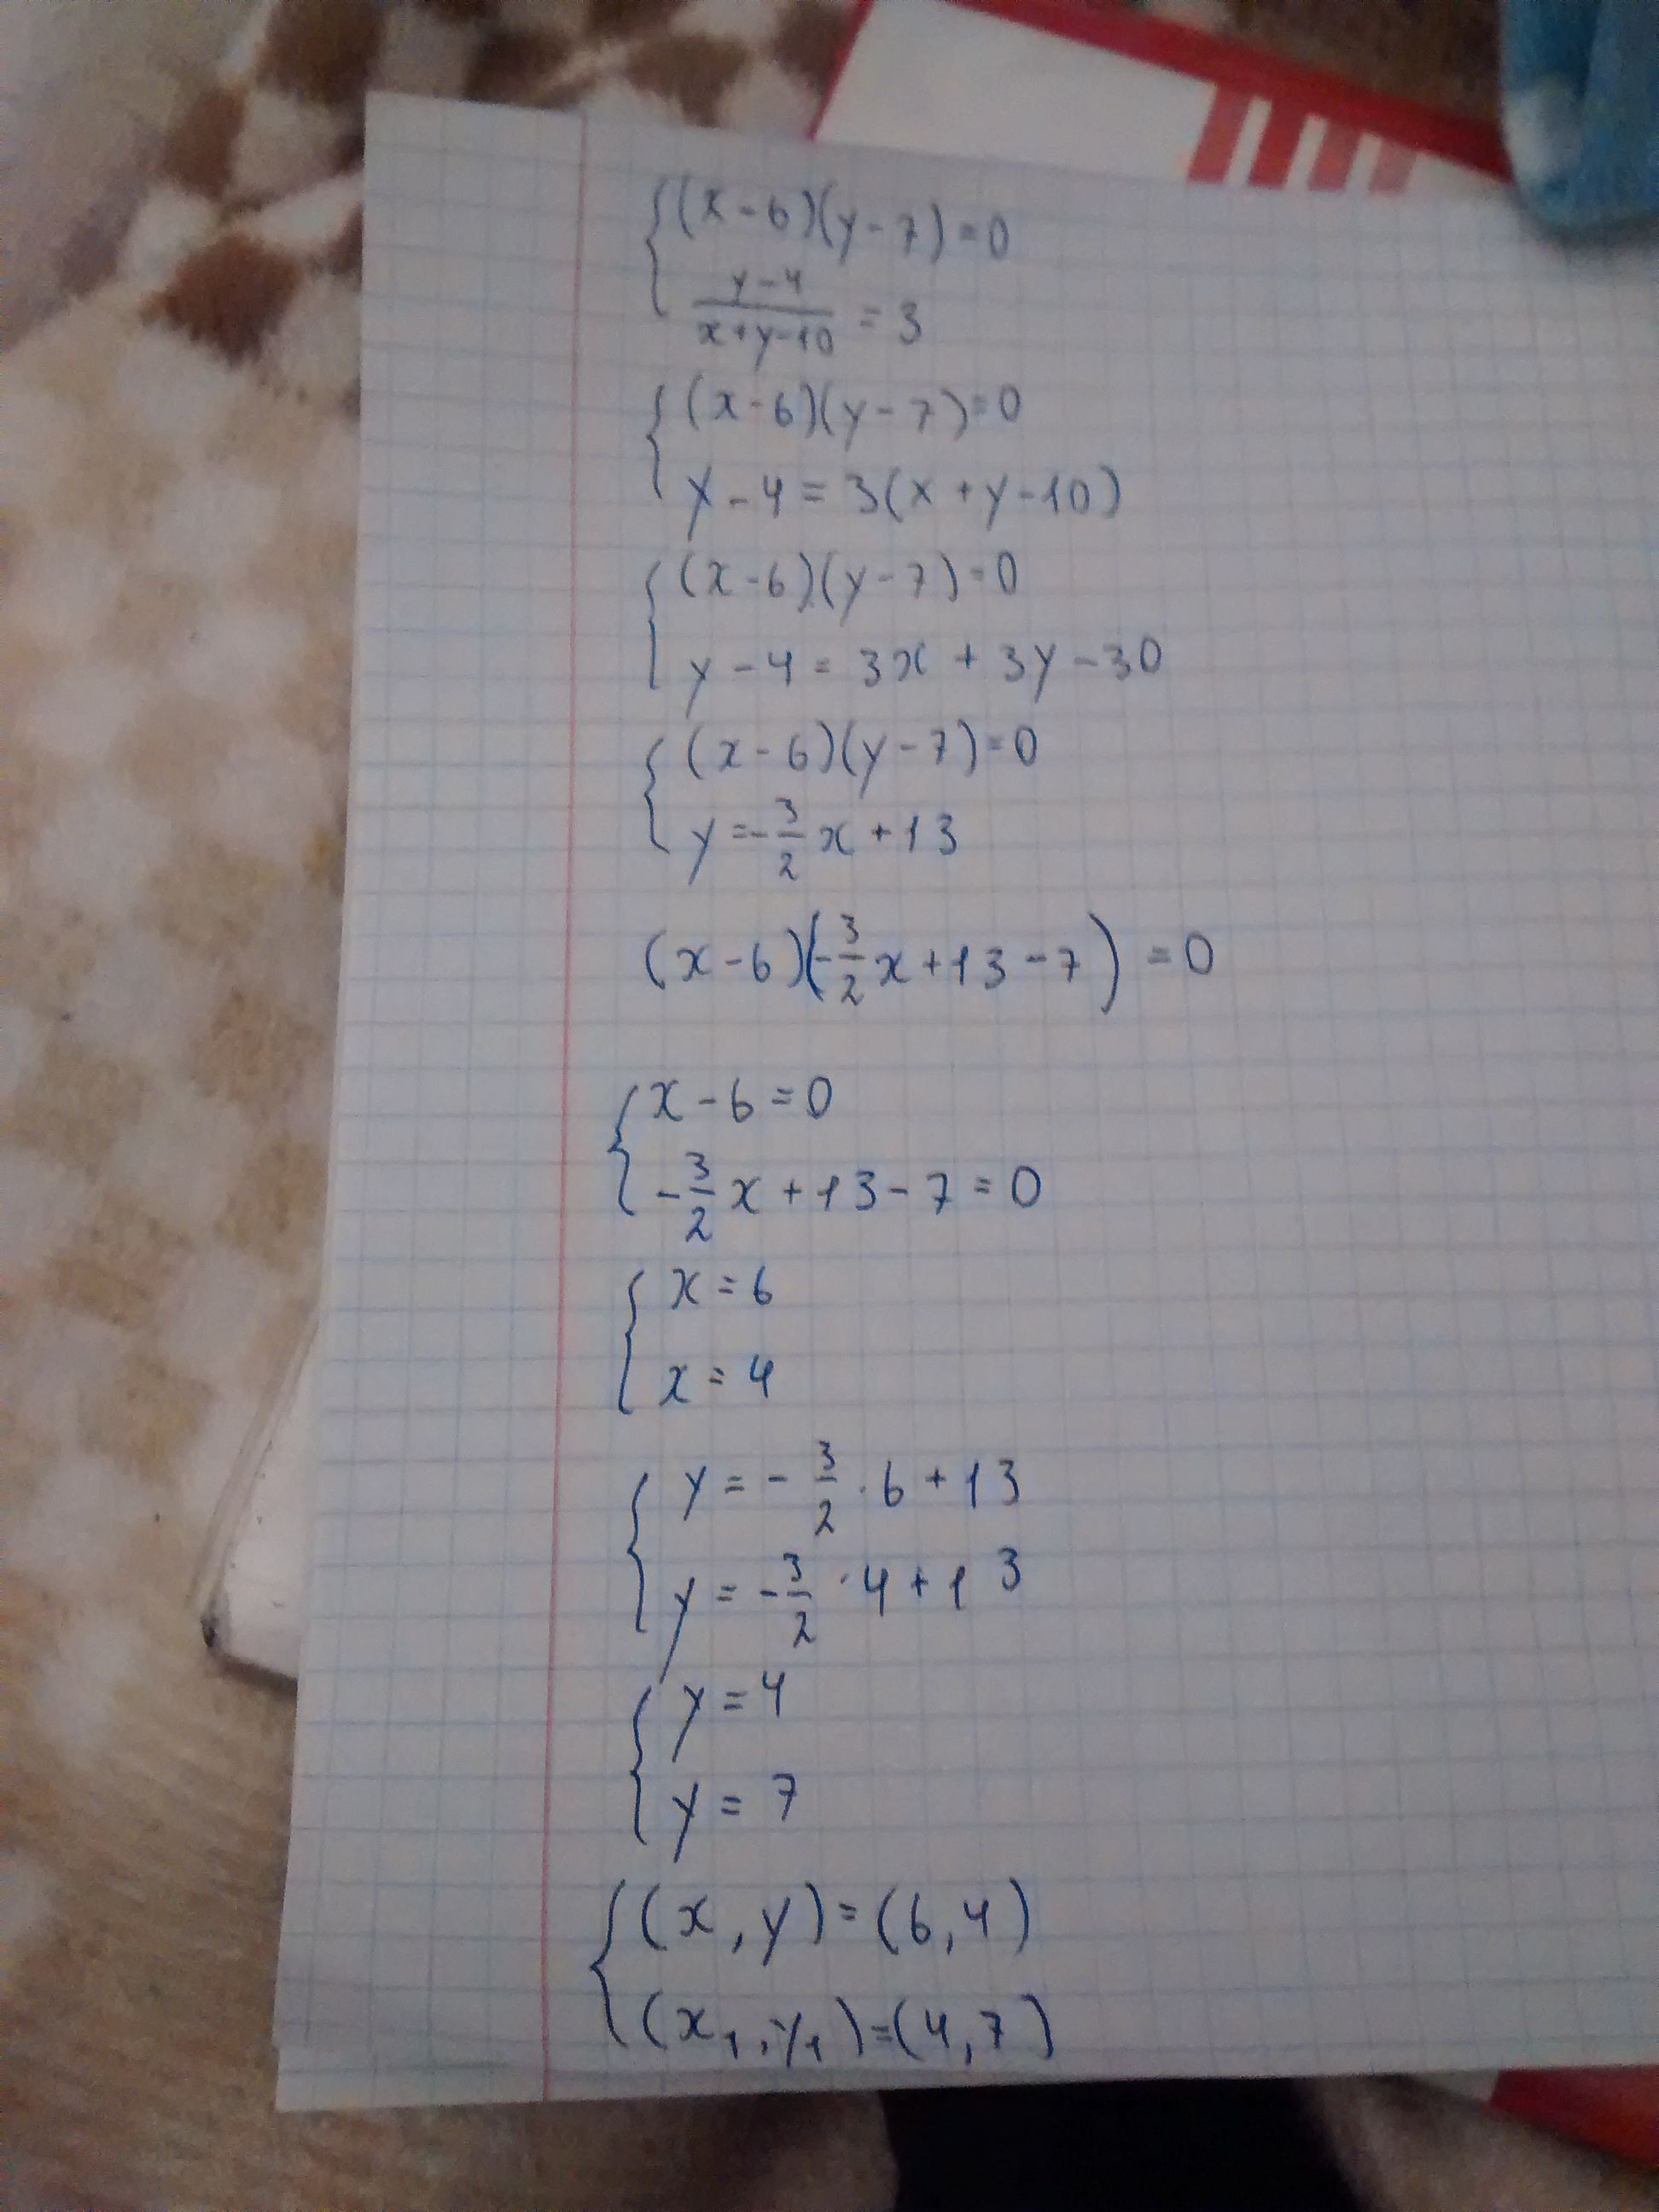 (x-6)(y-7)=0
y-4/x+y-10 = 3
(x-6)(y-7)=0
y-4=3(x+y-10)
(x-6)(y-7)=0
y-4=3x+3y-30
(x-6)(y-7)=0
y=-3/2x+13
(x-6)(-3/2x+13-7)=0
x-6=0
-3/2x+13-7=0
x=6
x=4
y=-3/2·6+13
y=-3/2·4+13
y=4
y=7
(x,y)=(6,4)
(x₁,y₁)=(4,7)